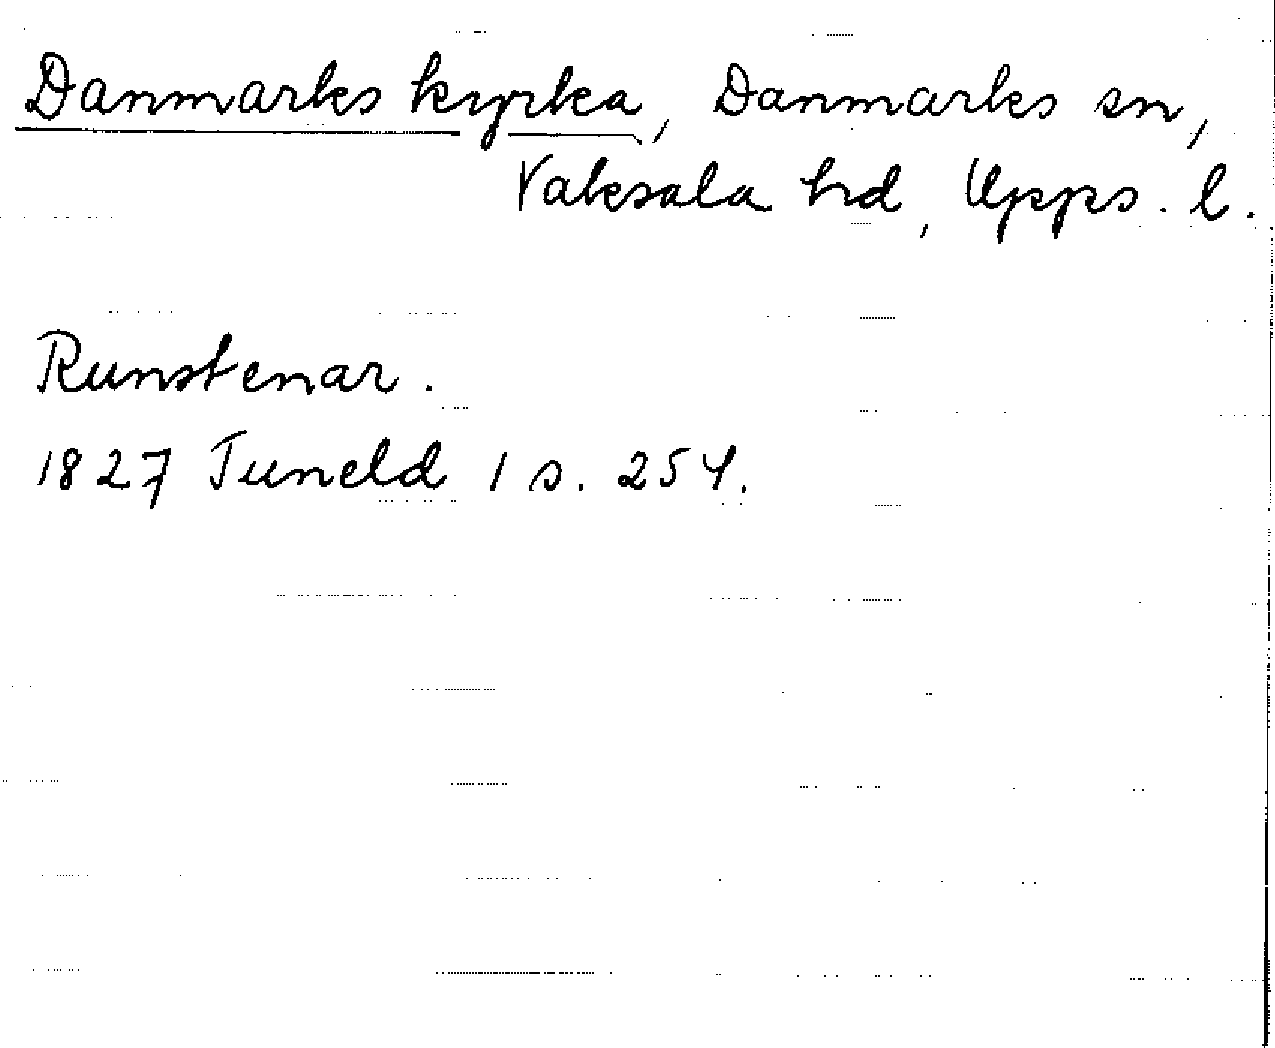 Danmarks kyrka, Danmarks sn,
Vaksala hd, Upps. l.
Runstenar.
1827 Tuneld 1 s. 254.